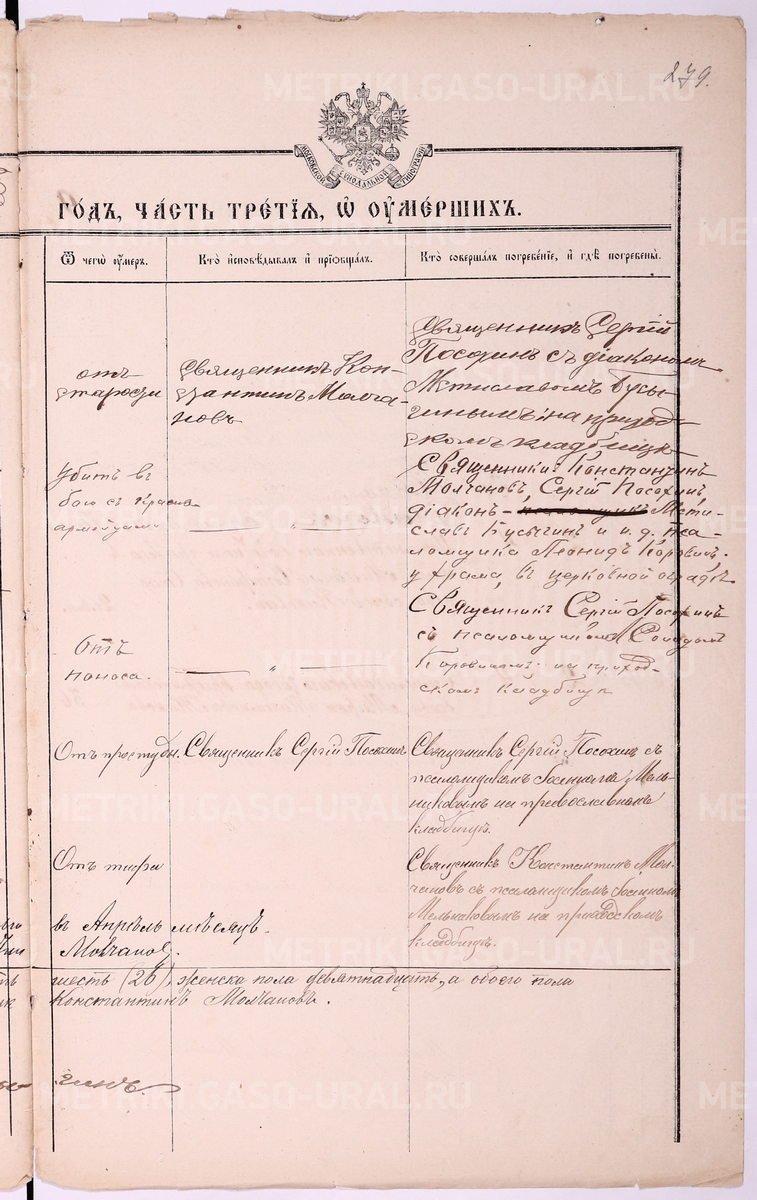 279.
МОСКОВСКОЙ СѴНОДАЛЬНОЙ ТИПОГРАФІИ
го́дъ, ча́сть тре́тїѧ, ѡ҆ ᲂу҆ме́ршихъ.
Ѿ чегѡ̀ ᲂу҆́меръ.
Кто̀ и҆сповѣ́дывалъ и҆ прїѻбща́лъ.
Кто̀ соверша́лъ погребе́нїе, и҆ гдѣ̀ погребены̀.
отъ
старости
Священникъ Кон-
стантинъ Молча-
новъ
Священникъ Сергій
Посохинъ съ діакономъ
Мстиславомъ Бусы-
гинымъ на приход-
скомъ кладбищѣ
Убитъ въ
бою съ красно-
армейцами
— „ —
Священники: Константинъ
Молчановъ, Сергій Посохинъ,
діаконъ Мсти-
славъ Бусыгинъ и и. д. пса-
ломщика Леонидъ Коровинъ.
у храма, въ церковной оградѣ
Отъ
поноса.
— „ —
Священникъ Сергій Посохинъ
съ псаломщикомъ
Коровинымъ на приход-
скомъ кладбищѣ
Отъ простуды.
Священникъ Сергій Посохинъ
Священникъ Сергій Посохинъ съ
псаломщикомъ Мель-
никовымъ на православномъ
кладбищѣ.
Отъ тифа
Священникъ Константинъ Мол-
чановъ съ псаломщикомъ
Мельниковымъ на приходскомъ
кладбищѣ.
въ Апрѣль мѣсяцъ.
Молчановъ.
шесть (26), женска пола девятнадцать, а обоего пола
Константинъ Молчановъ.
гинъ
METRIKI.GASO-URAL.RU